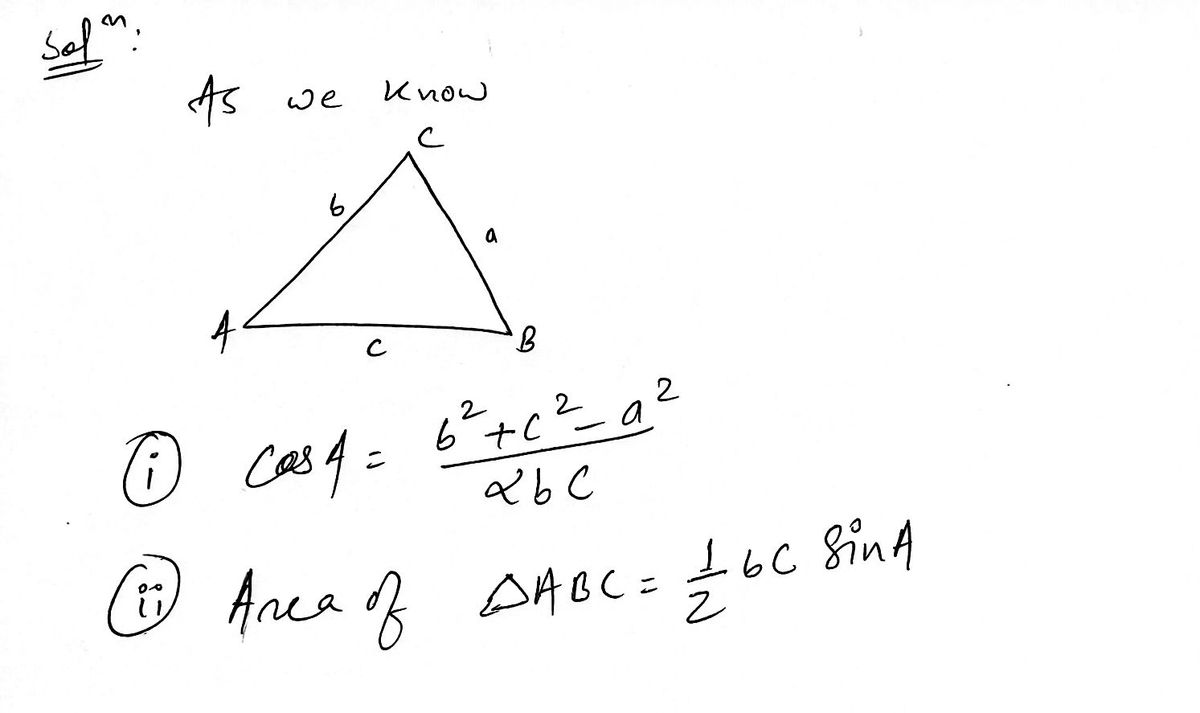 Solⁿ:
As we know
C
b
a
A
c
B
(i) Cos A = (b² + c² - a²) / 2bc
(ii) Area of △ABC = 1/2 bc Sin A